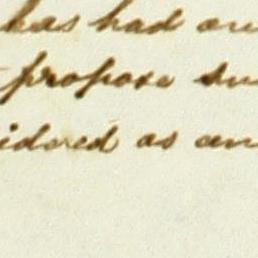 has had
propose
idered as an